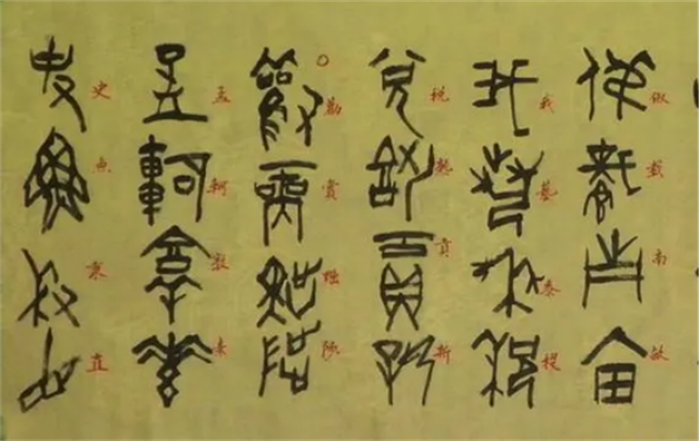 俶載南畝
我藝黍稷
稅熟貢新
勸賞黜陟
孟軻敦素
史魚秉直